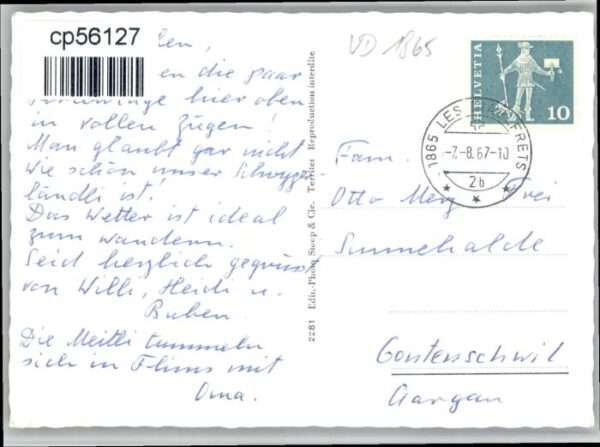 cp56127
en die paar
hier oben
in vollen Zügen!
Man glaubt gar nicht
wie schön unser Schwyzer-
ländli ist!
Das Wetter ist ideal
zum wandern.
Seid herzlich gegrüsst
von Willi, Heidi u.
Buben.
Die Meitli tummeln
sich in Flims mit
Oma.
2281 Edit.-Phot. & Cie. Territet Reproduction interdite
VD 1865
HELVETIA
10
1865 LES
-7.-8.67-10
2b
Fam.
Otto Merz Frei
Sunnehalde
Gontenschwil
Aargau